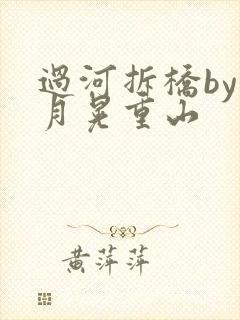 過河拆橋by
月晃重山
黄萍萍